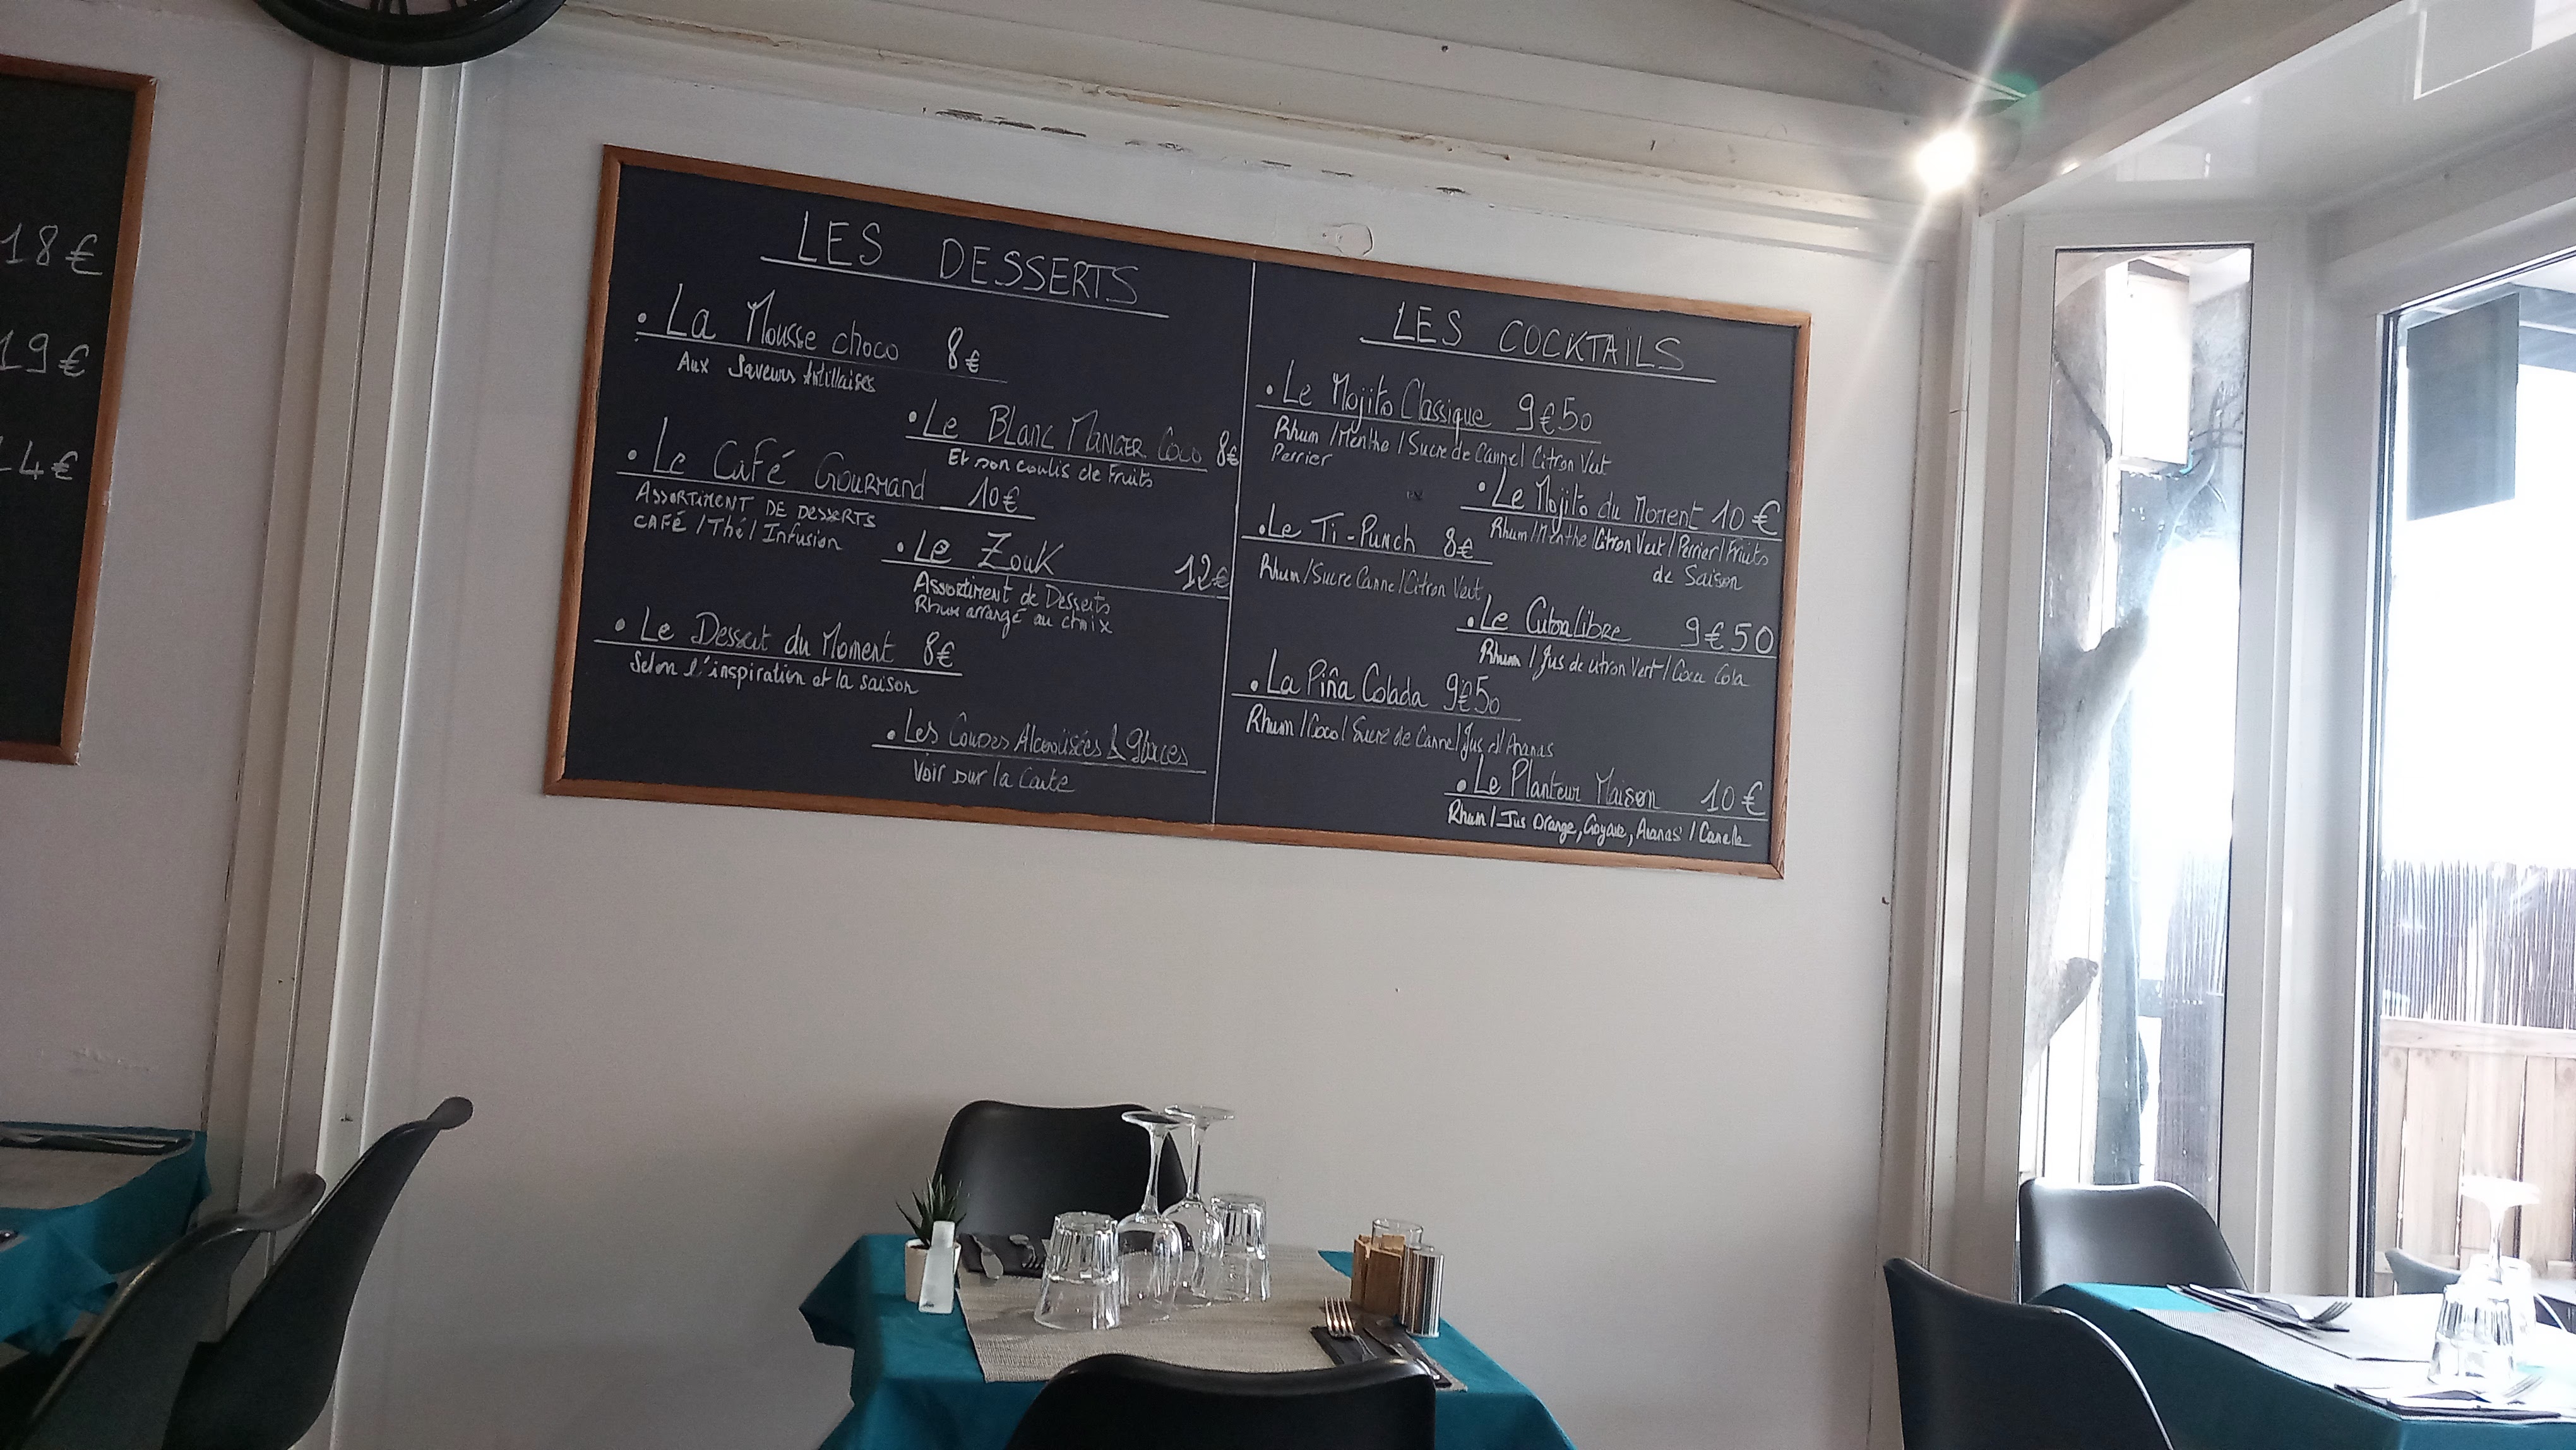 18€
19€
4€
LES DESSERTS
• La Mousse choco 8€
Aux Saveurs Antillaises
• Le BLANC MANGER COCO 8€
Et son coulis de Fruits
• Le CaFé GOURMAND 10€
ASSORTIMENT DE DESSERTS
CAFÉ / Thé / Infusion
• Le ZOUK 12€
Assortiment de Desserts
Rhum arrangé au choix
• Le Dessert du Moment 8€
Selon l'inspiration et la saison
• Les Coupes Alcoolisées & glaces
Voir sur la Carte
LES COCKTAILS
• Le Mojito Classique 9€50
Rhum / Menthe / Sucre de Canne / Citron Vert
Perrier
• Le Mojito du Moment 10€
Rhum / Menthe / Citron Vert / Perrier / Fruits
de Saison
• Le Ti-Punch 8€
Rhum / Sucre Canne / Citron Vert
• Le CubaLiBRE 9€50
Rhum / Jus de citron Vert / Coca Cola
• La Piña Colada 9€50
Rhum / Coco / Sucre de Canne / Jus d'Ananas
• Le Planteur Maison 10€
Rhum / Jus Orange, Goyave, Ananas / Canelle